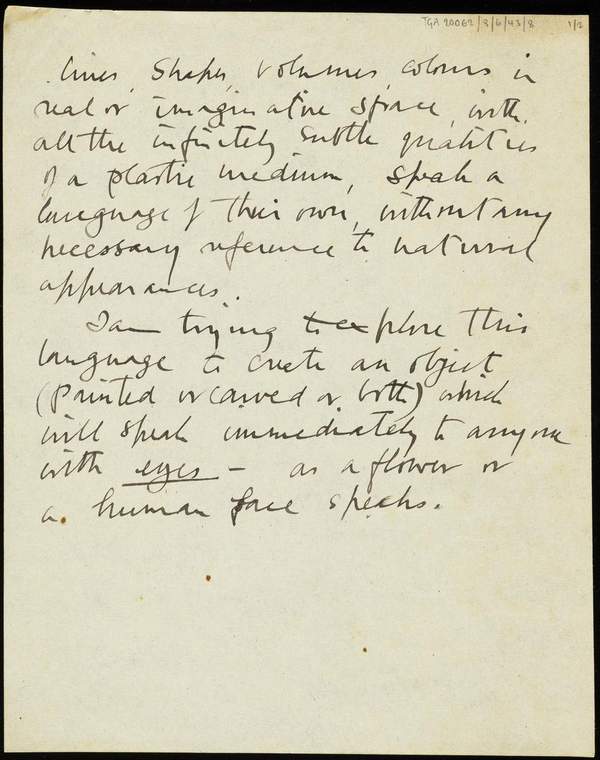 TGA 20062/2/6/43/8 1/2
lines, shapes, volumes, colours in
real or imaginative space, with
all the infinitely subtle qualities
of a plastic medium, speak a
language of their own, without any
necessary reference to natural
appearances.
I am trying to explore this
language to create an object
(painted or carved or both) which
will speak immediately to anyone
with eyes – as a flower or
a human face speaks.